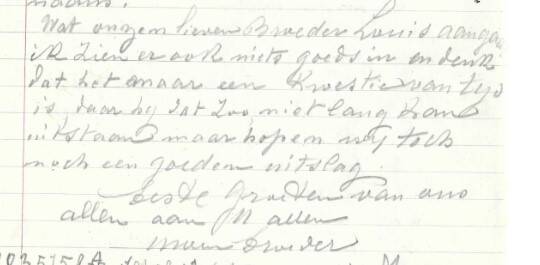 Wat onzen lieven Broeder Louis aangaa
ik zien er ook niets goeds in en denk
dat het maar een Kwestie van tijd
is, daar hij dat zoo niet lang kan
uitstaan maar hopen wij toch
noch een goeden uitslag.
beste groeten van ons
allen aan U allen
uwen Broeder